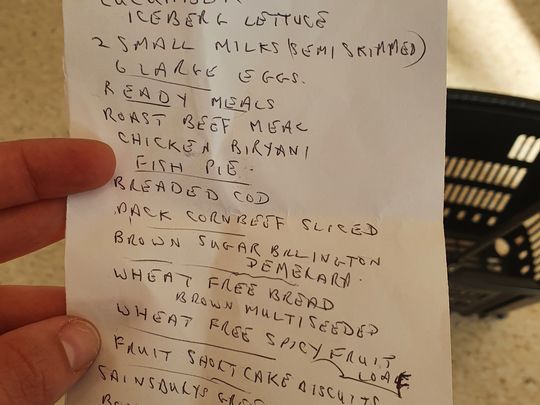 ICEBERG LETTUCE
2 SMALL MILKS (SEMI SKIMMED)
6 LARGE EGGS.
READY MEALS
ROAST BEEF MEAL
CHICKEN BIRYANI
FISH PIE.
BREADED COD
PACK CORNBEEF SLICED
BROWN SUGAR BILLINGTON
DEMERARA.
WHEAT FREE BREAD
BROWN MULTISEEDED
WHEAT FREE SPICY FRUIT
LOAF
FRUIT SHORTCAKE BISCUITS
SAINSBURYS